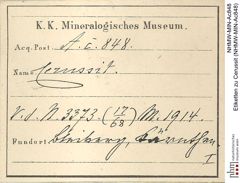 K. K. Mineralogisches Museum.
Acq. Post. A. a. 848.
Name Cerussit.
V. S. N. 3373. (17/68) M. 1914.
Fundort Bleiberg, Kärnthen.
I
NHMW-MIN-Ac848
Etiketten zu Cerussit (NHMW-MIN-Ac848)
nhm